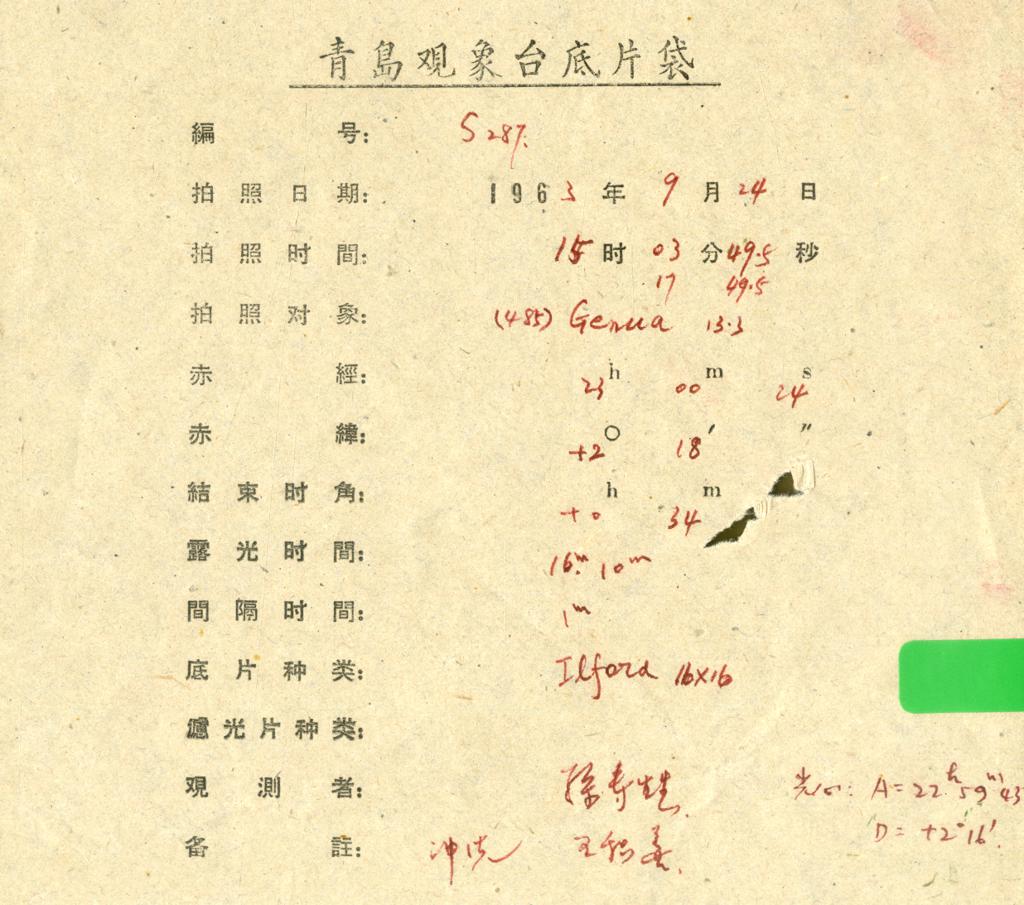 青島观象台底片袋
編号: S 287.
拍照日期: 1963年 9月 24日
拍照时間: 15时 03分 49.5秒
17 49.5
拍照对象: (485) Genua 13.3
赤經: 23h 00m 24s
赤緯: +2° 18′ ″
結束时角: +0h 34m
露光时間: 16m. 10m
間隔时間: 1m
底片种类: Ilford 16×16
濾光片种类:
观測者: 孫寿
光心: A=22h 59m 43
备註: 冲洗 王
D= +2°16′.